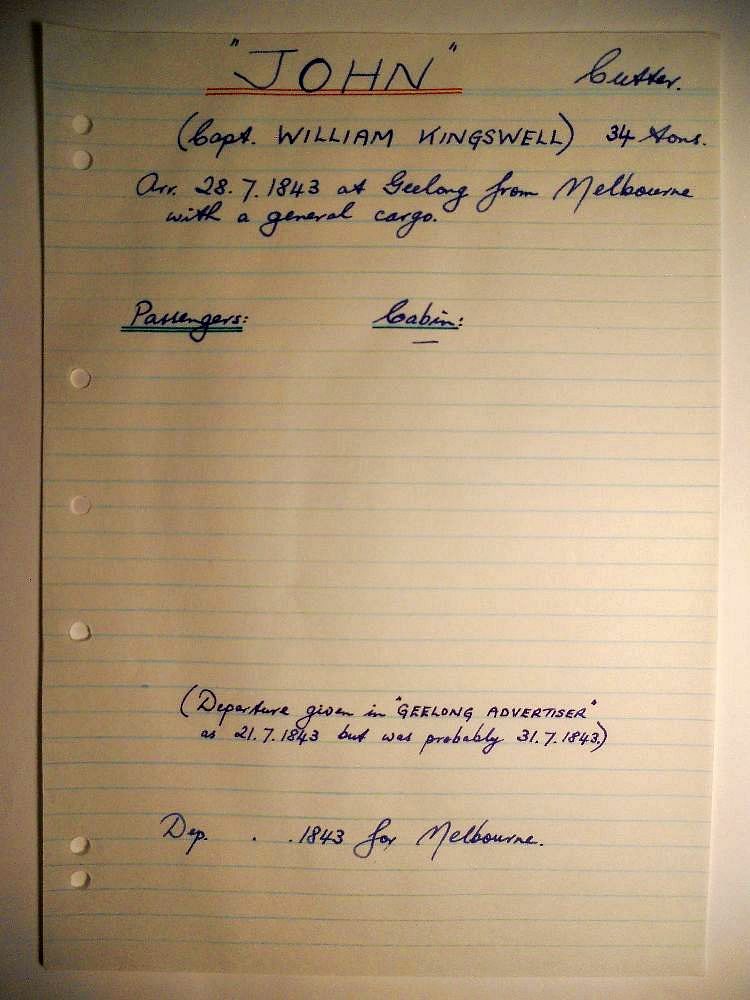 "JOHN" Cutter.
(Capt. WILLIAM KINGSWELL) 34 tons.
Arr. 28.7.1843 at Geelong from Melbourne
with a general cargo.
Passengers: Cabin:
—
(Departure given in "GEELONG ADVERTISER"
as 21.7.1843 but was probably 31.7.1843.)
Dep. . .1843 for Melbourne.